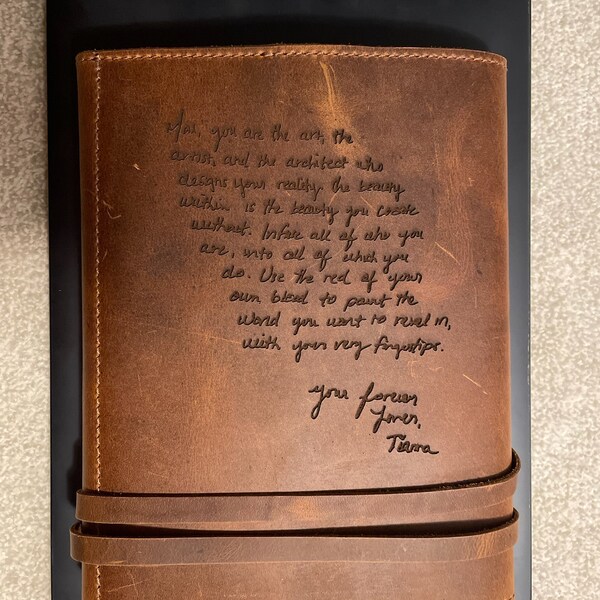 you are the art, the
artist, and the architect who
designs your reality. the beauty
within is the beauty you create
without. Infuse all of who you
are, into all of which you
do. Use the red of your
own blood to paint the
world you want to revel in,
with your very fingertips.
your forever
lover,
Tianna